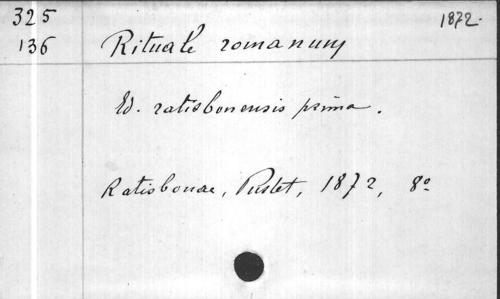 325 1872.
136 Rituale romanum
Ed. ratisbonensis prima.
Ratisbonae, Pustet, 1872, 8º